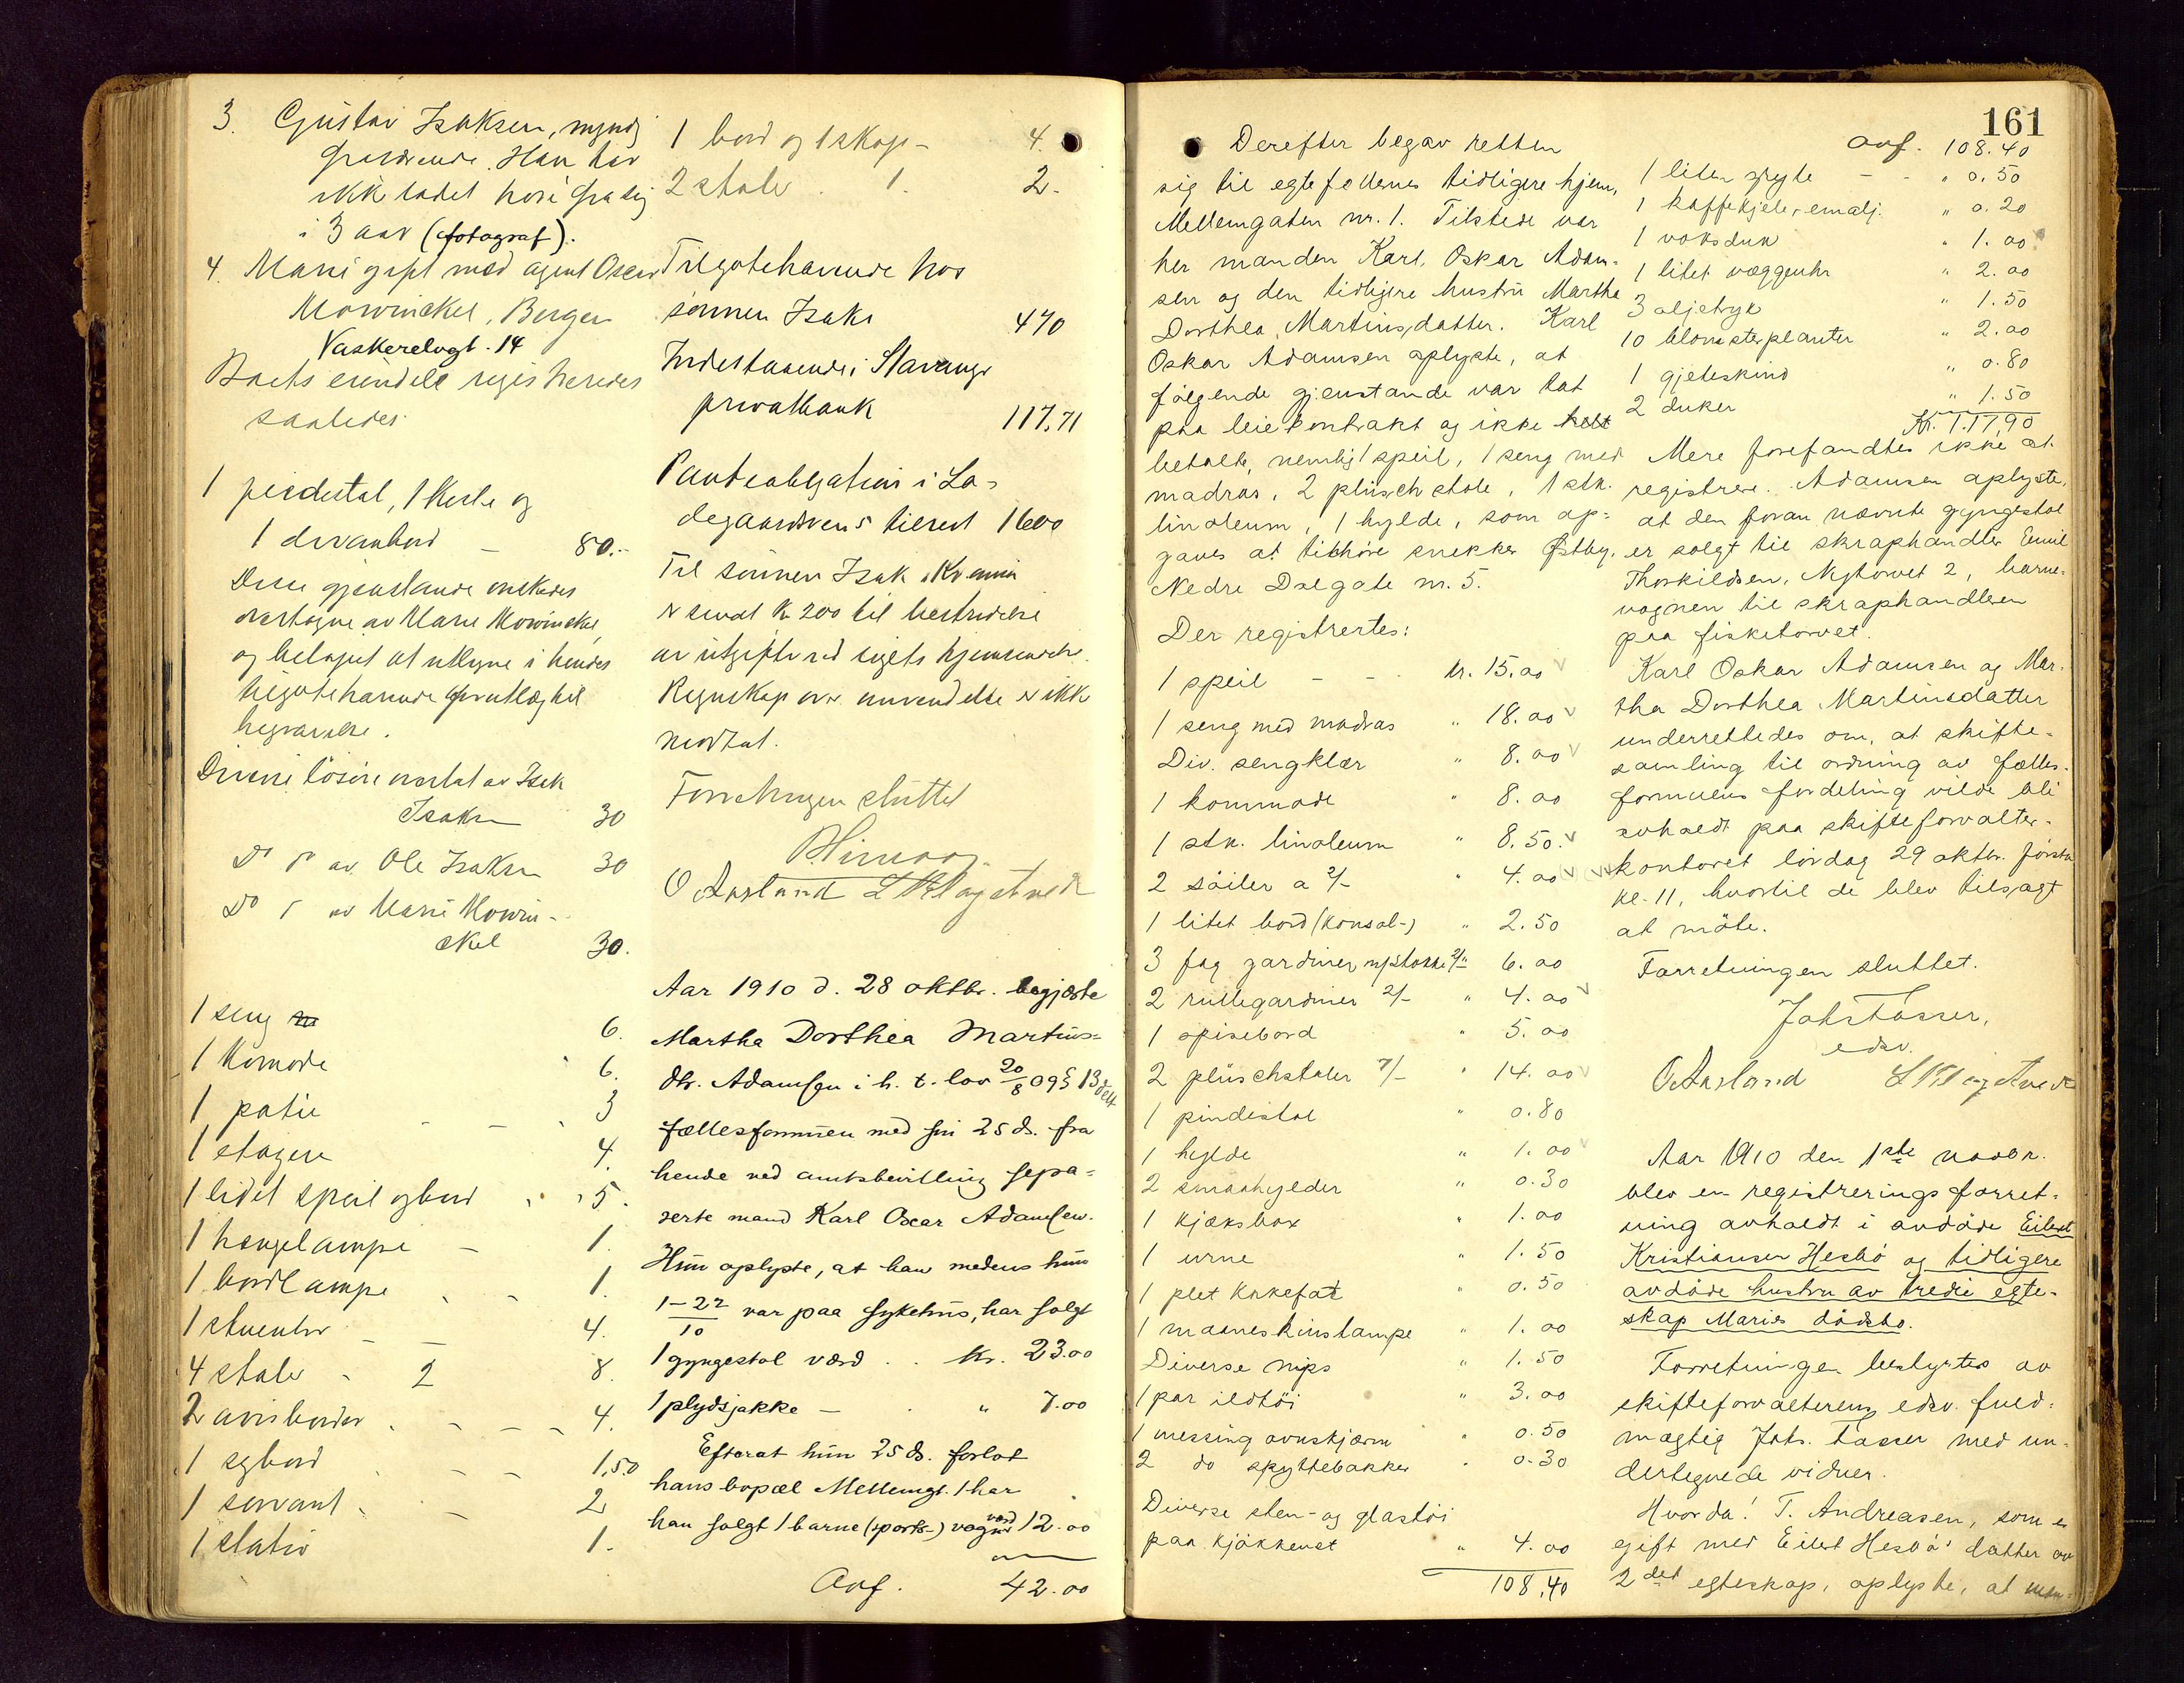 3. Gustav Isaksen, myndig
fraværende. Han har
ikke ladet høre fra sig
i 3 aar (fotograf).
4. Marie gift med agent Oscar
Mowinckel, Bergen
Vaskerelvgt. 14
Boets eiendele registreredes
saaledes.
1 piedestal, 1 kiste og
1 divanbord – 80.-
Disse gjenstande ønskedes
overtagne av Marie Mowinckel,
og beløpet at utligne i hendes
tilgodehavende for utlæg til
begravelse.
Diverse løsøre mottat av Isak
Isaksen 30
Do do av Ole Isaksen 30
Do do av Marie Mowin-
ckel 30.
1 seng 6.
1 Komode 6.
1 patie - - 3
1 etagere 4.
1 lidet speil og bord - - 5.
1 hængelampe – 1.
1 bordlampe - - 1.
1 stueuhr – – 4.
4 stoler - 2 8.
2 avisborder - - - 4.
1 sybord - - 1,50
1 servant - - 2
1 stativ 1.
1 bord og 1 skap – 4.
2 stole 1. 2.
Tilgodehavende hos
sønnen Isak 470
Indestaaende i Stavanger
privatbank 117,71
Panteobligation i La-
degaardsveens tilrest 1600
Til sønnen Isak
er sendt Kr 200 til bestridelse
av utgifter ved ligets hjemsendelse.
Regnskap over anvendelse er ikke
mottat.
Forretningen sluttet
O Aasland
Aar 1910 d. 28 oktbr. begjærte
Martha Dorthea Martins-
dtr. Adamsen i h. t. lov 20/8 09 § 13 delt
fællesformuen med sin 25 ds. fra
hende ved amtsbevilling sepa-
rerte mand Karl Oscar Adamsen.
Hun oplyste, at han medens hun
1–22/10 var paa sykehus, har solgt
1 gyngestol værd . . kr. 23.00
1 plydsjakke – . " 7.00
Efterat hun 25 ds. forlot
hans bopæl Mellemgt. 1 har
han solgt 1 barne (sports-) vogn værd 12.00
Ovf. 42.00
161
Derefter begav retten
sig til egtefellenes tidligere hjem,
Mellemgaten nr. 1. Tilstede var
her manden Karl Oskar Adam-
sen og den tidligere hustru Martha
Dorthea Martinsdatter. Karl
Oskar Adamsen oplyste, at
følgende gjenstande var tat
paa leiekontrakt og ikke helt
betalt, nemlig 1 speil, 1 seng med
madras, 2 plüsch stole, 1 stk.
linoleum, 1 hylde, som op-
gaves at tilhøre snekker Østby,
Nedre Dalgate nr. 5.
Der registrertes:
1 speil - - - kr. 15.00
1 seng med madras " 18.00
Div. sengklær " 8.00
1 kommode " 8.00
1 stk. linoleum " 8.50.
2 søiler a 2/- " 4.00
1 litet bord (konsol-) " 2.50
3 fag gardiner m/stokke 2/- 6.00
2 rullegardiner 2/- " 4.00
1 spisebord " 5.00
2 plüschstoler 7/- " 14.00
1 pindestol " 0.80
1 hylde " 1.00
2 smaahylder " 0.30
1 kjæksbox " 1.00
1 urne " 1.50
1 plet kakefat " 0.50
1 maaneskinslampe " 1.00
Diverse nips " 1.50
1 par ildtøi " 3.00
1 messing ovnskjærm " 0.50
2 do spyttebakker " 0.30
Diverse sten- og glastøi
paa kjøkkenet " 4.00
108,40
Ovf. 108.40
1 liten gryte – - " 0.50
1 kaffekjele, emalj. " 0.20
1 voksduk " 1.00
1 litet vægguhr " 2.00
3 oljetryk " 1.50
10 blomsterplanter " 2.00
1 gjeteskind " 0.80
2 duker " 1.50
Kr. 117,90
Mere forefandtes ikke at
registrere. Adamsen oplyste,
at den foran nævnte gyngestol
er solgt til skraphandler Emil
Thorkildsen, Nytorvet 2, barne-
vognen til skraphandleren
paa fisketorvet.
Karl Oskar Adamsen og Mar-
tha Dorthea Martinsdatter
underrettedes om, at skifte-
samling til ordning av fælles-
formuens fordeling vilde bli
avholdt paa skifteforvalter-
kontoret lørdag 29 oktbr. førstk.
kl. 11, hvortil de blev tilsagt
at møte.
Forretningen sluttet.
Joh Tasser,
edsv.
O Aasland
Aar 1910 den 1ste novbr.
blev en registreringsforret-
ning avholdt i avdøde Eilert
Kristiansen Hesbø og tidligere
avdøde hustru av tredie egte-
skap Maries dødsbo.
Forretningen bestyrtes av
skifteforvalterens edsv. fuld-
mægtig Joh. Tasser med un-
dertegnede vidner.
Hvorda! T. Andreasen, som er
gift med Eilert Hesbø's datter av
2det egteskap, oplyste, at